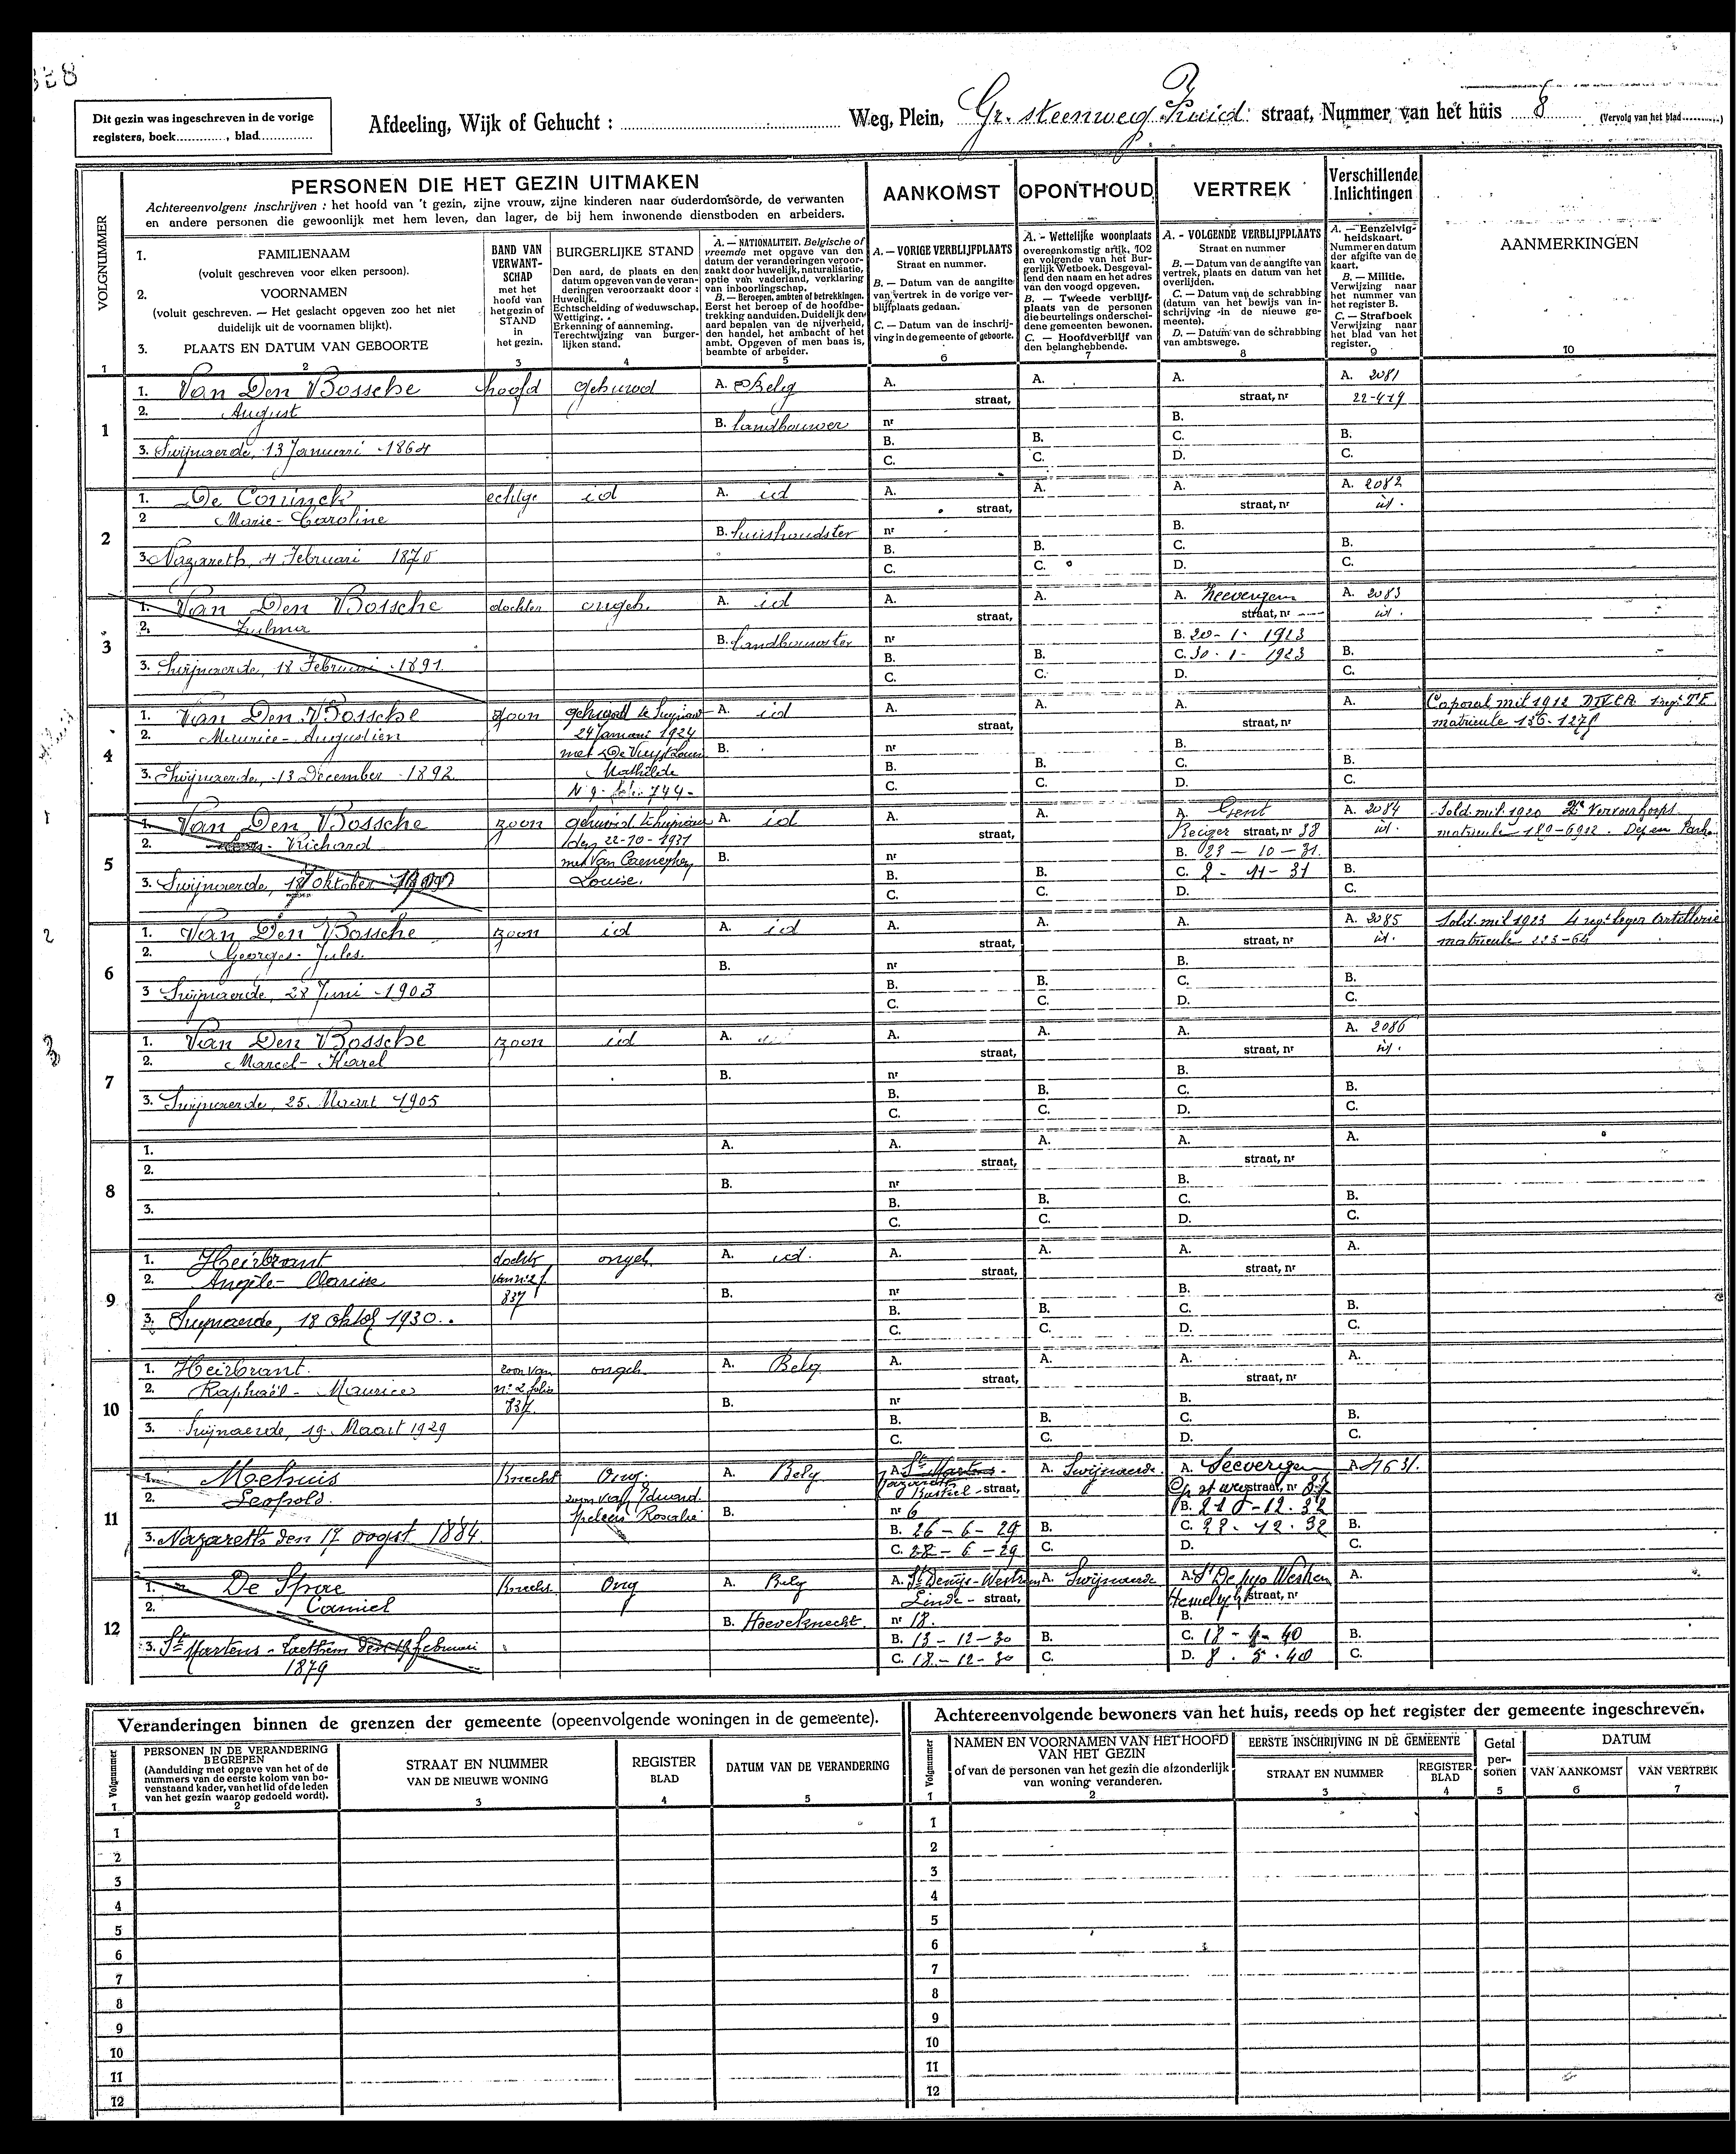 328
Dit gezin was ingeschreven in de vorige
registers, boek............, blad.............
Afdeeling, Wijk of Gehucht :
Weg, Plein, Gr. steenweg Zuid straat, Nummer van het huis 8 (Vervolg van het blad..........)
VOLGNUMMER
PERSONEN DIE HET GEZIN UITMAKEN
Achtereenvolgens inschrijven : het hoofd van 't gezin, zijne vrouw, zijne kinderen naar ouderdomsorde, de verwanten
en andere personen die gewoonlijk met hem leven, dan lager, de bij hem inwonende dienstboden en arbeiders.
AANKOMST
OPONTHOUD
VERTREK
Verschillende
Inlichtingen
AANMERKINGEN
1. FAMILIENAAM
(voluit geschreven voor elken persoon).
2. VOORNAMEN
(voluit geschreven. — Het geslacht opgeven zoo het niet
duidelijk uit de voornamen blijkt).
3. PLAATS EN DATUM VAN GEBOORTE
BAND VAN
VERWANT-
SCHAP
met het
hoofd van
het gezin of
STAND
in
het gezin.
BURGERLIJKE STAND
Den aard, de plaats en den
datum opgeven van de veran-
deringen veroorzaakt door :
Huwelijk.
Echtscheiding of weduwschap.
Wettiging.
Erkenning of aanneming.
Terechtwijzing van burger-
lijken stand.
A. — NATIONALITEIT. Belgische of
vreemde met opgave van den
datum der veranderingen veroor-
zaakt door huwelijk, naturalisatie,
optie van vaderland, verklaring
van inboorlingschap.
B. — Beroepen, ambten of betrekkingen.
Eerst het beroep of de hoofdbe-
trekking aanduiden. Duidelijk den
aard bepalen van de nijverheid,
den handel, het ambacht of het
ambt. Opgeven of men baas is,
beambte of arbeider.
A. — VORIGE VERBLIJFPLAATS
Straat en nummer.
B. — Datum van de aangifte
van vertrek in de vorige ver-
blijfplaats gedaan.
C. — Datum van de inschrij-
ving in de gemeente of geboorte.
A. - Wettelijke woonplaats
overeenkomstig artik. 102
en volgende van het Bur-
gerlijk Wetboek. Desgeval-
lend den naam en het adres
van den voogd opgeven.
B. — Tweede verblijf-
plaats van de personen
die beurtelings onderschei-
dene gemeenten bewonen.
C. — Hoofdverblijf van
den belanghebbende.
A. - VOLGENDE VERBLIJFPLAATS
Straat en nummer
B. — Datum van de aangifte van
vertrek, plaats en datum van het
overlijden.
C. — Datum van de schrabbing
(datum van het bewijs van in-
schrijving in de nieuwe ge-
meente).
D. — Datum van de schrabbing
van ambtswege.
A. — Eenzelvig-
heidskaart.
Nummer en datum
der afgifte van de
kaart.
B. — Militie.
Verwijzing naar
het nummer van
het register B.
C. — Strafboek
Verwijzing naar
het blad van het
register.
1 2 3 4 5 6 7 8 9 10
1
1. Van Den Bossche hoofd gehuwd A. Belg A. straat, A. A. straat, nr A. 2081
2. August 22-4-19
B. landbouwer nr B.
3. Swijnaerde, 13 Januari 1864 B. B. C. B.
C. C. D. C.
2
1. De Coninck echtge id A. id A. straat, A. A. straat, nr A. 2082
2 Marie-Caroline id.
B. huishoudster nr B.
3. Nazareth, 4 Februari 1870 B. B. C. B.
C. C. D. C.
3
1. Van Den Bossche dochter ongeh. A. id A. straat, A. A. Zeevergem straat, nr A. 2083
2. Zulma id.
B. landbouwster nr B. 20-1-1923
3. Swijnaerde, 18 Februari 1891 B. B. C. 30-1-1923 B.
C. C. D. C.
4
1. Van Den Bossche zoon gehuwd te A. id A. straat, A. A. straat, nr A. Caporal mil 1912
2. Maurice-Augustien 24 Januari 1924 matricule 136-127
met De Vuyst B. nr B.
3. Swijnaerde, 13 December 1892 Mathilde B. B. C. B.
744 C. C. D. C.
5
1. Van Den Bossche zoon gehuwd A. id A. straat, A. A. Gent A. 2084 Sold. mil 1920
2. Richard 22-10-1931 Keizer straat, nr 38 id. matricule 180-6912
met Van Louise. B. nr B. 23-10-31.
3. Swijnaerde, 18 Oktober B. B. C. 2-11-31 B.
C. C. D. C.
6
1. Van Den Bossche zoon id A. id A. straat, A. A. straat, nr A. 2085 Sold. mil 1923 4 regt leger Artillerie
2. Georges-Jules. id. matricule 223-64
B. nr B.
3 Swijnaerde, 28 Juni 1903 B. B. C. B.
C. C. D. C.
7
1. Van Den Bossche zoon id A. A. straat, A. A. straat, nr A. 2086
2. Marcel-Karel id.
B. nr B.
3. Swijnaerde, 25 Maart 1905 B. B. C. B.
C. C. D. C.
8
1. A. A. straat, A. A. straat, nr A.
2.
B. nr B.
3. B. B. C. B.
C. C. D. C.
9
1. Heirbrant dochter ongeh. A. id. A. straat, A. A. straat, nr A.
2. Angèle-Clarisse van n° 2 f.
837 B. nr B.
3. Swijnaerde, 18 oktob 1930. B. B. C. B.
C. C. D. C.
10
1. Heirbrant. zoon van ongeh. A. Belg A. straat, A. A. straat, nr A.
2. Raphaël-Maurice n° 2 folio
837. B. nr B.
3. Swijnaerde, 19 Maart 1929 B. B. C. B.
C. C. D. C.
11
1. Knecht Ong. A. Belg A. St Martens- A. Swijnaerde. A. Seevergem A. 4631.
2. Leopold. zoon van Eduard Nazareth Kasteel-straat, straat, nr 87
Rosalie B. nr 6 B. 12.32
3. Nazareth den 17 oogst 1884. B. 26-6-29 B. C. 12.32 B.
C. 28-6-29 C. D. C.
12
1. Knecht. Ong A. Belg A. St Denijs-Westrem A. Swijnaerde A. A.
2. Camiel Linde-straat, straat, nr
B. Hoeveknecht. nr 18. B.
3. St Martens-Laethem den februari B. 13-12-30 B. C. 18-4-40 B.
1879 C. 18-12-30 C. D. 8.5.40 C.
Veranderingen binnen de grenzen der gemeente (opeenvolgende woningen in de gemeente).
Volgnummer
PERSONEN IN DE VERANDERING
BEGREPEN
(Aanduiding met opgave van het of de
nummers van de eerste kolom van bo-
venstaand kader, van het lid of de leden
van het gezin waarop gedoeld wordt).
STRAAT EN NUMMER
VAN DE NIEUWE WONING
REGISTER
BLAD
DATUM VAN DE VERANDERING
1 2 3 4 5
1
2
3
4
5
6
7
8
9
10
11
12
Achtereenvolgende bewoners van het huis, reeds op het register der gemeente ingeschreven.
Volgnummer
NAMEN EN VOORNAMEN VAN HET HOOFD
VAN HET GEZIN
of van de personen van het gezin die afzonderlijk
van woning veranderen.
EERSTE INSCHRIJVING IN DE GEMEENTE
STRAAT EN NUMMER
REGISTER
BLAD
Getal
per-
sonen
DATUM
VAN AANKOMST
VAN VERTREK
1 2 3 4 5 6 7
1
2
3
4
5
6
7
8
9
10
11
12